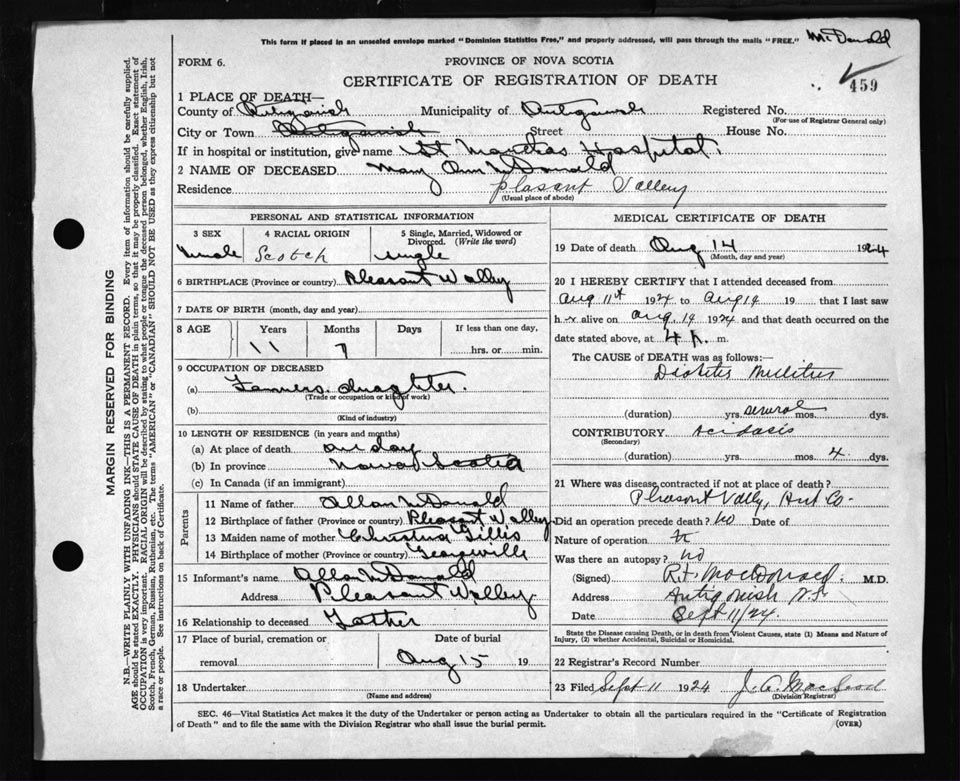 This form if placed in an unsealed envelope marked "Dominion Statistics Free," and properly addressed, will pass through the mails "FREE."
McDonald
FORM 6.
PROVINCE OF NOVA SCOTIA
CERTIFICATE OF REGISTRATION OF DEATH
459
1 PLACE OF DEATH—
County of Antigonish Municipality of Antigonish Registered No.
(For use of Registrar General only)
City or Town Antigonish Street House No.
If in hospital or institution, give name St Marthas Hospital.
2 NAME OF DECEASED Mary Ann McDonald
Residence Plasant Valley
(Usual place of abode)
PERSONAL AND STATISTICAL INFORMATION
3 SEX 4 RACIAL ORIGIN 5 Single, Married, Widowed or Divorced. (Write the word)
Scotch single
6 BIRTHPLACE (Province or country) Pleasant Valley
7 DATE OF BIRTH (month, day and year)
8 AGE Years Months Days If less than one day,
11 7 hrs. or min.
9 OCCUPATION OF DECEASED
(a) Farmers daughter.
(Trade or occupation or kind of work)
(b)
(Kind of industry)
10 LENGTH OF RESIDENCE (in years and months)
(a) At place of death one day
(b) In province Nowa Scotia
(c) In Canada (if an immigrant)
Parents
11 Name of father Allan McDonald
12 Birthplace of father (Province or country) Pleasant Valley
13 Maiden name of mother Christina Gillis
14 Birthplace of mother (Province or country) Georgeville
15 Informant's name Allan McDonald
Address Pleasant Valley
16 Relationship to deceased Father
17 Place of burial, cremation or removal Date of burial
Aug 15 19
18 Undertaker
(Name and address)
MEDICAL CERTIFICATE OF DEATH
19 Date of death Aug 14 1924
(Month, day and year)
20 I HEREBY CERTIFY that I attended deceased from
Aug 11th 1924 to Aug 14 19 that I last saw
h alive on Aug. 14 1924 and that death occurred on the
date stated above, at 4 m.
The CAUSE OF DEATH was as follows:—
Diabetes Mellitus
(duration) yrs. several mos. dys.
CONTRIBUTORY Acidosis
(Secondary)
(duration) yrs. mos. 4 dys.
21 Where was disease contracted if not at place of death?
Pleasant Vally, Ant Co-
Did an operation precede death? No Date of
Nature of operation
Was there an autopsy? No
(Signed) R.F. MacDonald. M.D.
Address Antigonish N.S.
Date Sept 11/24
State the Disease causing Death, or in death from Violent Causes, state (1) Means and Nature of
Injury, (2) whether Accidental, Suicidal or Homicidal.
22 Registrar's Record Number
23 Filed Sept 11 1924
(Division Registrar)
SEC. 46—Vital Statistics Act makes it the duty of the Undertaker or person acting as Undertaker to obtain all the particulars required in the "Certificate of Registration
of Death" and to file the same with the Division Registrar who shall issue the burial permit.
(OVER)
MARGIN RESERVED FOR BINDING
N.B.—WRITE PLAINLY WITH UNFADING INK—THIS IS A PERMANENT RECORD. Every item of information should be carefully supplied.
AGE should be stated EXACTLY. PHYSICIANS should STATE CAUSE OF DEATH in plain terms, so that it may be properly classified. Exact statement of
OCCUPATION is very important. RACIAL ORIGIN will be described by stating to what people or tongue the deceased person belonged, whether English, Irish,
Scotch, French, German, Russian, Ruthenian, etc. The terms "AMERICAN" or "CANADIAN" SHOULD NOT BE USED as they express citizenship but not
a race or people. See instructions on back of Certificate.